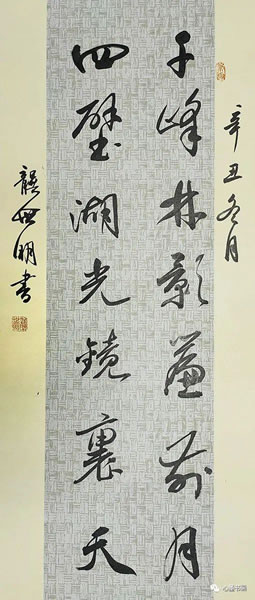 辛丑冬月
千峰林影簾前月
四壁湖光鏡裏天
龔世明書